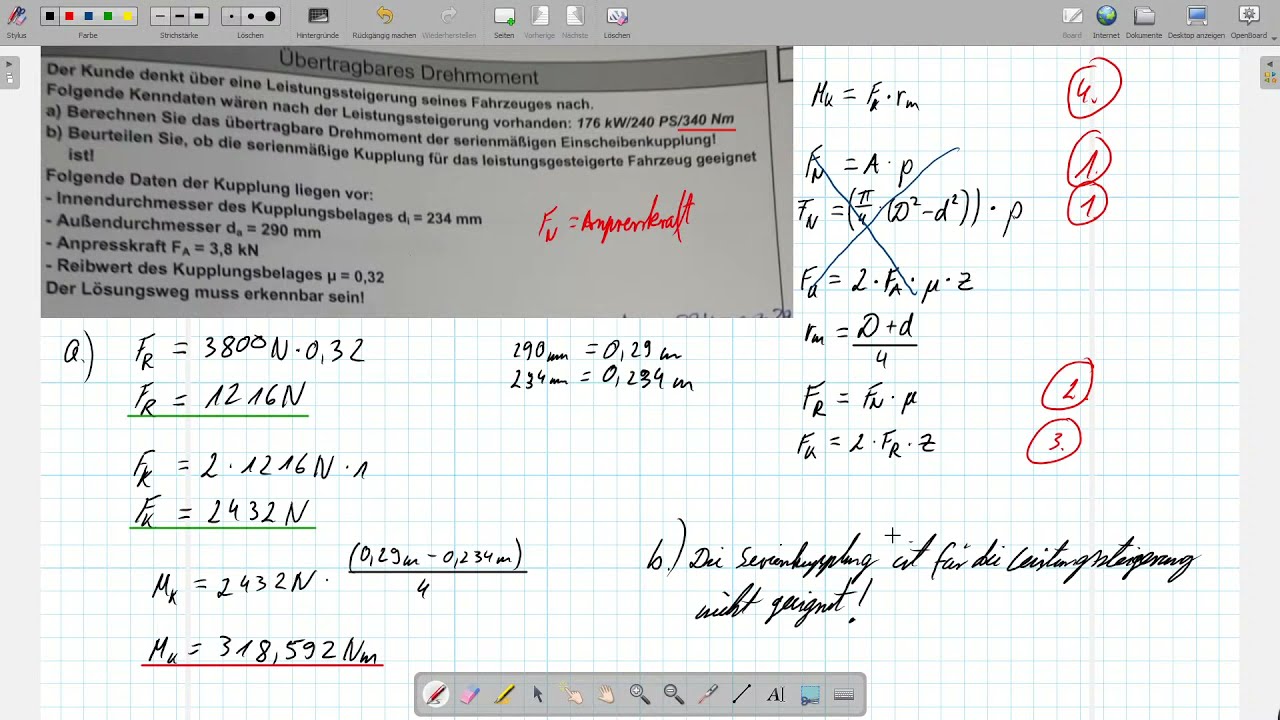 Stylus
Farbe
Strichstärke
Löschen
Hintergründe
Rückgängig machen
Wiederherstellen
Seiten
Vorherige
Nächste
Löschen
Board
Internet
Dokumente
Desktop anzeigen
OpenBoard
Übertragbares Drehmoment
Der Kunde denkt über eine Leistungssteigerung seines Fahrzeuges nach.
Folgende Kenndaten wären nach der Leistungssteigerung vorhanden: 176 kW/240 PS/340 Nm
a) Berechnen Sie das übertragbare Drehmoment der serienmäßigen Einscheibenkupplung!
b) Beurteilen Sie, ob die serienmäßige Kupplung für das leistungsgesteigerte Fahrzeug geeignet
ist!
Folgende Daten der Kupplung liegen vor:
- Innendurchmesser des Kupplungsbelages di = 234 mm
- Außendurchmesser da = 290 mm
- Anpresskraft FA = 3,8 kN
- Reibwert des Kupplungsbelages µ = 0,32
Der Lösungsweg muss erkennbar sein!
FN = Anpresskraft
MK = FK · rm
4.
FN = A · p
1.
FN = (π/4 (D² - d²)) · p
1
FK = 2 · FA · µ · z
rm = D + d / 4
FR = FN · µ
2.
FK = 2 · FR · z
3.
a.) FR = 3800N · 0,32
FR = 1216N
290mm = 0,29 m
234mm = 0,234 m
FK = 2 · 1216N · 1
FK = 2432N
MK = 2432N · (0,29m - 0,234m) / 4
MK = 318,592 Nm
b.) Die Serienkupplung ist für die Leistungssteigerung
nicht geeignet!